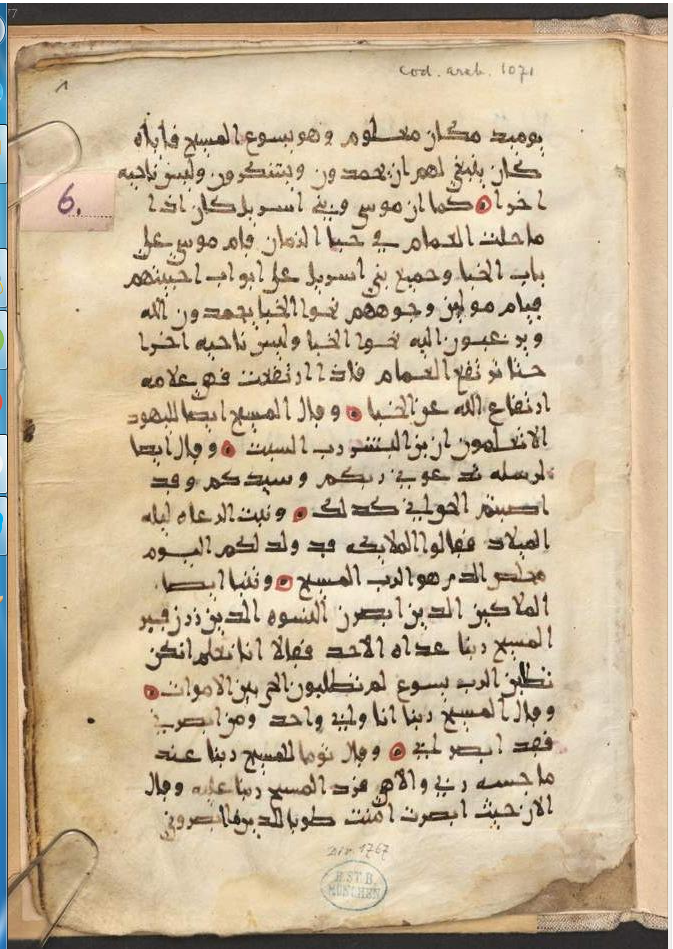 Cod. arab. 1071
1
6.
يوميد مكان معلوم وهو يسوع المسيح فاياه
كان ينبغي لهم ان يحمدون ويشكرون وليس ناحيه
اخرا كما ان موسي وبني اسريل كان اذا
ما حلت الغمام في خبا الزمان قام موسي علي
باب الخبا وجميع بني اسريل علي ابواب اخبيتهم
قيام مولين وجوههم نحو الخبا يحمدون الله
ويرغبون اليه نحو الخبا وليس ناحيه اخرا
حتا ترتفع الغمام فاذا ارتفعت فهي علامه
ارتفاع الله عن الخبا وقال المسيح ايضا لليهود
الا تعلمون ان بن البشر رب السبت وقال ايضا
لرسله تدعوني ربكم وسيدكم وقد
اصبتم القول اني كذلك ونبت الرعاه ليله
الميلاد فقالوا الملايكه قد ولد لكم اليوم
مخلص الذي هو الرب المسيح ونبيا ايضا
الملاكين الذين ابصرن النسوه الذين زرن قبر
المسيح ربنا غداه الاحد فقالا انا نعلم انكن
تطلبن الرب يسوع لم تطلبون الحي بين الاموات
وقال المسيح ربنا انا وابي واحد ومن ابصرني
فقد ابصر ابي وقال توما للمسيح ربنا عند
ما جسه ربي والاهي فرد المسيح ربنا عليه وقال
الان حيث ابصرت امنت طوبا للذين لم يبصروني
Div. 1767
B.ST.B.
MÜNCHEN